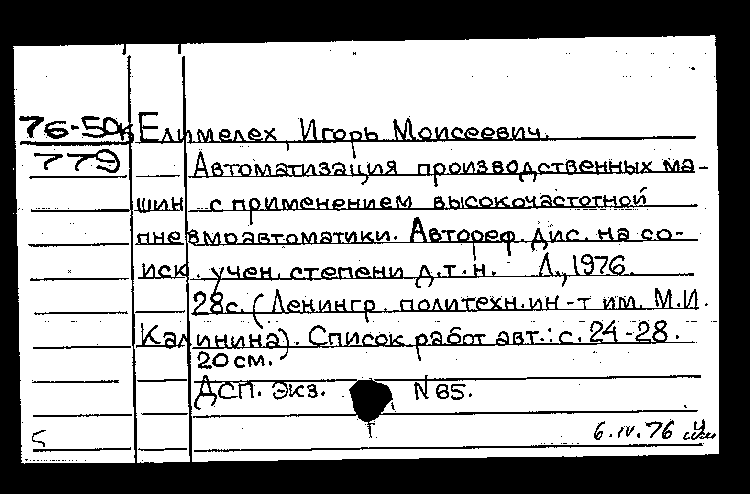 76-50к Елимелех, Игорь Моисеевич.
779 Автоматизация производственных ма-
шин с применением высокочастотной
пневмоавтоматики. Автореф. дис. на со-
иск. учен. степени д.т.н. Л., 1976.
28с. (Ленингр. политехн. ин-т им. М.И.
Калинина). Список работ авт.: с. 24-28.
20 см.
ДСП. Экз. N 65.
5 6.IV.76